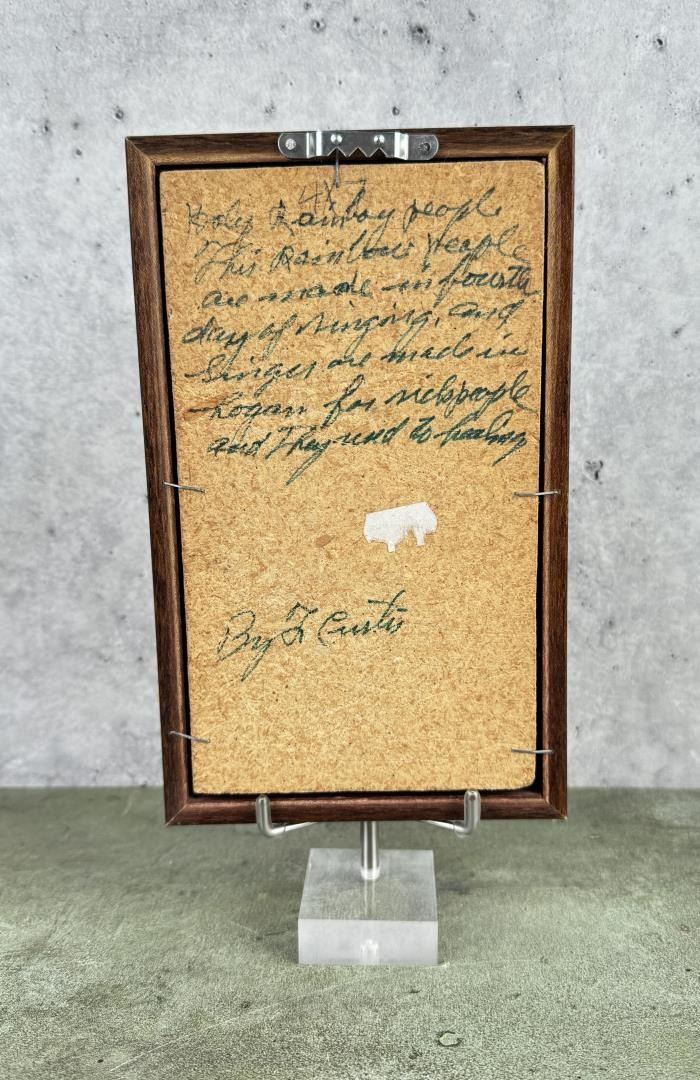 4x7
Holy Rainboy people
This Rainbow People
are made in fourth
day of singing, and
singer are made in
hogan for sickpeople
and They used to healing
By F Curtis